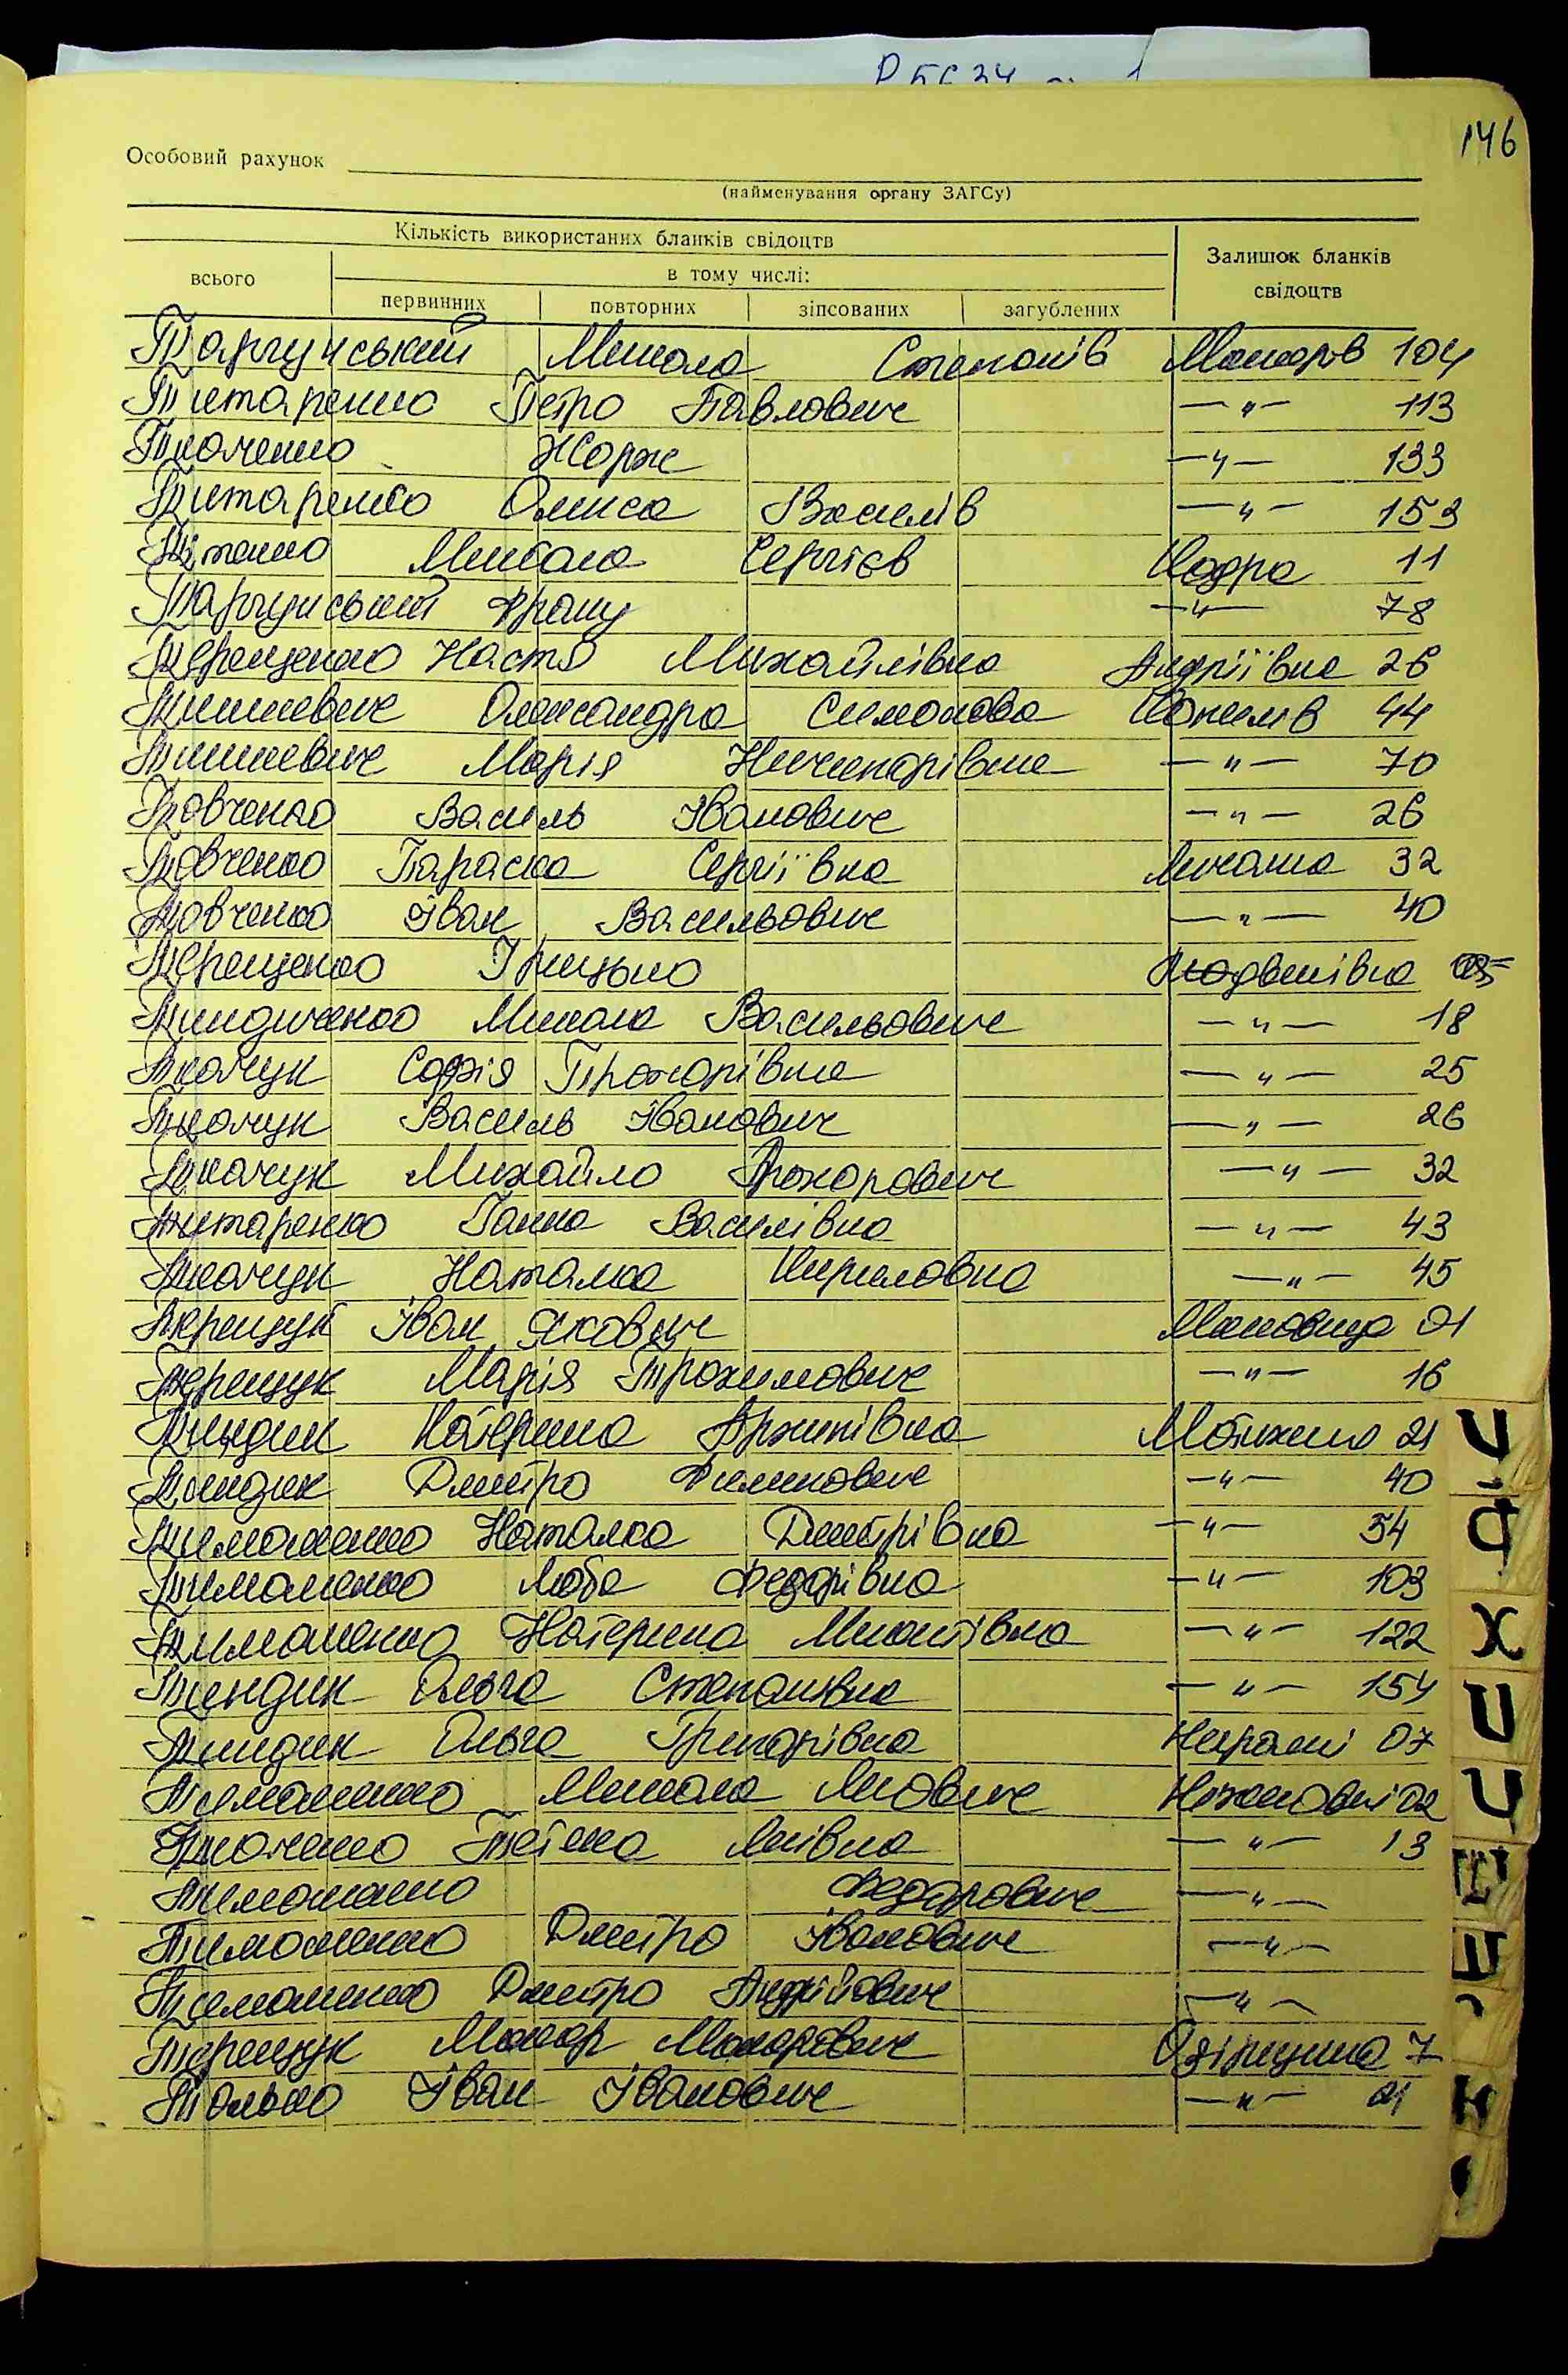 146
Особовий рахунок
(найменування органу ЗАГСу)
Кількість використаних бланків свідоцтв
Залишок бланків свідоцтв
всього
в тому числі:
первинних повторних зіпсованих загублених
Таргунський Микола Степанів Макарів 104
Титаренко Петро Павлович —"— 113
Ткаченко Жорж —"— 133
Титаренко Олекса Василів —"— 153
Микола Сергієв Кодра 11
Таргунський Франц —"— 78
Терещенко Настя Михайлівна Андріївка 26
Тишкевич Олександра Симонова Копилів 44
Тишкевич Марія Ничипорівна —"— 70
Товченко Василь Іванович —"— 26
Товченко Параска Сергіївна Личанка 32
Товченко Іван Васильович —"— 40
Терещенко Грицько Людвинівка
Тиндиченко Микола Васильович —"— 18
Ткачук Софія Прохорівна —"— 25
Ткачук Василь Іванович —"— 26
Ткачук Михайло Прохорович —"— 32
Титаренко Ганна Василівна —"— 43
Ткачук Наталка Кириловна —"— 45
Терещук Іван Якович Маковище 01
Терещук Марія Трохимович —"— 16
Тиндик Катерина Архипівна Мотижин 21
Тиндик Дмитро Филипович —"— 40
Тимошенко Наталка Дмитрівна —"— 54
Тимошенко Люба Федорівна —"— 103
Тимошенко Катерина Микитівна —"— 122
Тиндик Ольга Степанівна —"— 154
Тиндик Ольга Григорівна Неграші 07
Тимошенко Микола Якович Нежиловичі 02
Ткаченко Тетяна —"— 13
Тимошенко Федорович —"—
Тимошенко Дмитро Іванович —"—
Тимошенко Дмитро Андрійович —"—
Терещук Макар Макарович Озірщина 7
Талько Іван Іванович —"— 21
Ф
Х